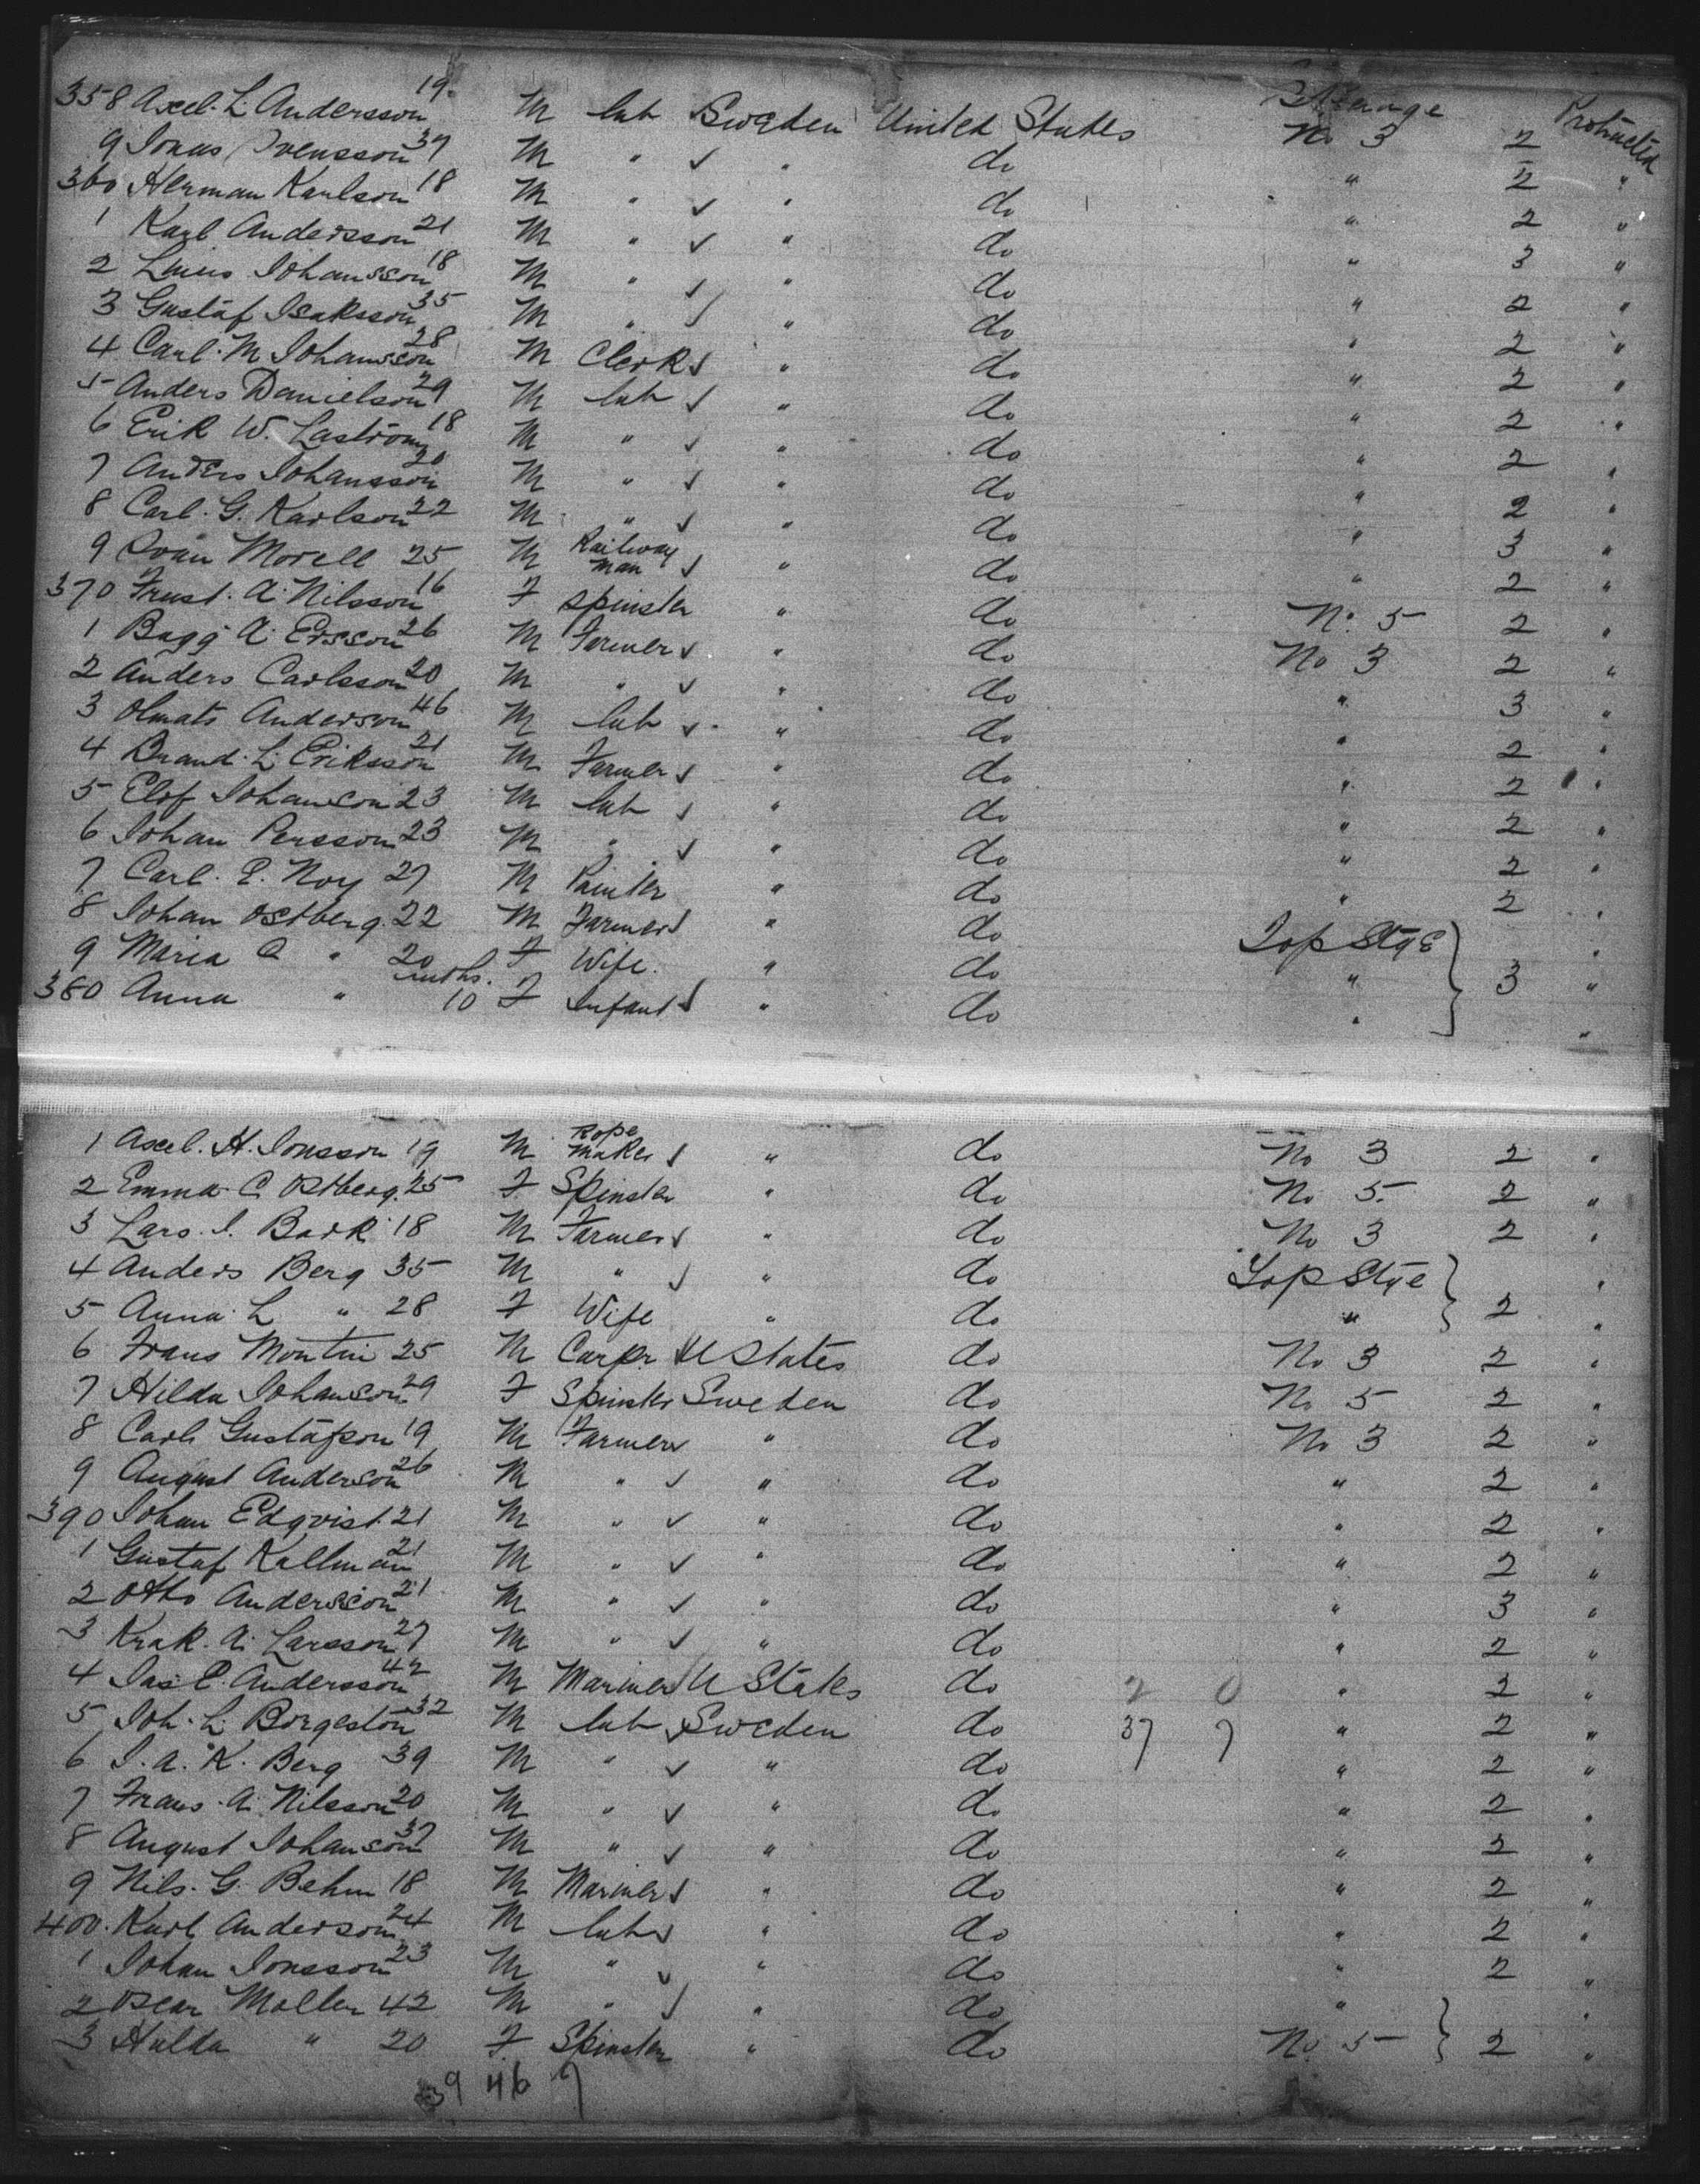 Steerage
358 Axel. L. Andersson 19 M lab Sweden United States No 3 2 Protracted
9 Jonas Svensson 37 M " " do " 2 "
360 Herman Karlson 18 M " " do " 2 "
1 Karl Andersson 21 M " " do " 3 "
2 Johansson 18 M " " do " 2 "
3 Gustaf Isaksson 35 M " " do " 2 "
4 Carl. M Johansson 28 M Clerk " do " 2 "
5 Anders Danielson 29 M lab " do " 2 "
6 Erik W. Lastrom 18 M " " do " 2 "
7 Anders Johansson 20 M " " do " 2 "
8 Carl. G. Karlson 22 M " " do " 3 "
9 Morell 25 M Railway Man " do " 2 "
370 A. Nilsson 16 F Spinster " do No. 5 2 "
1 A. Ersson 26 M Farmer " do No 3 2 "
2 Anders Carlsson 20 M " " do " 3 "
3 Olmats Anderson 46 M lab " do " 2 "
4 Brand. L. Eriksson 21 M Farmer " do " 2 "
5 Elof Johanson 23 M lab " do " 2 "
6 Johan Persson 23 M " " do " 2 "
7 Carl. E. Noy 27 M Painter " do " 2 "
8 Johan Ostberg 22 M Farmer " do Top Stge "
9 Maria C " 20 F Wife " do " 3 "
380 Anna " mths. 10 F Infant " do " "
1 Axel. H. Jonsson 19 M Rope Maker " do No 3 2 "
2 Emma C Ostberg. 25 F Spinster " do No 5 2 "
3 Lars. J. Bark 18 M Farmer " do No 3 2 "
4 Anders Berg 35 M " " do Top Stge "
5 Anna L " 28 F Wife " do " 2 "
6 Frans Montin 25 M Carpr U States do No 3 2 "
7 Hilda Johanson 29 F Spinster Sweden do No 5 2 "
8 Carl Gustafson 19 M Farmer " do No 3 2 "
9 August Anderson 26 M " " do " 2 "
390 Johan Edqvist 21 M " " do " 2 "
1 Gustaf Kallman 21 M " " do " 2 "
2 Otto Andersson 21 M " " do " 3 "
3 A. Larsson 27 M " " do " 2 "
4 Jas E. Andersson 42 M Mariner U States do 2 0 " 2 "
5 Joh. L. Borgeston 32 M lab Sweden do 37 7 " 2 "
6 J. A. K. Berg 39 M " " do " 2 "
7 Frans. A. Nilsson 20 M " " do " 2 "
8 August Johanson 37 M " " do " 2 "
9 Nils. G. Behm 18 M Mariner " do " 2 "
400. Karl Anderson 24 M lab " do " 2 "
1 Johan Jonsson 23 M " " do " 2 "
2 Oscar Mollen 42 M " " do " "
3 Hulda " 20 F Spinster " do No. 5 2 "
39 46 7